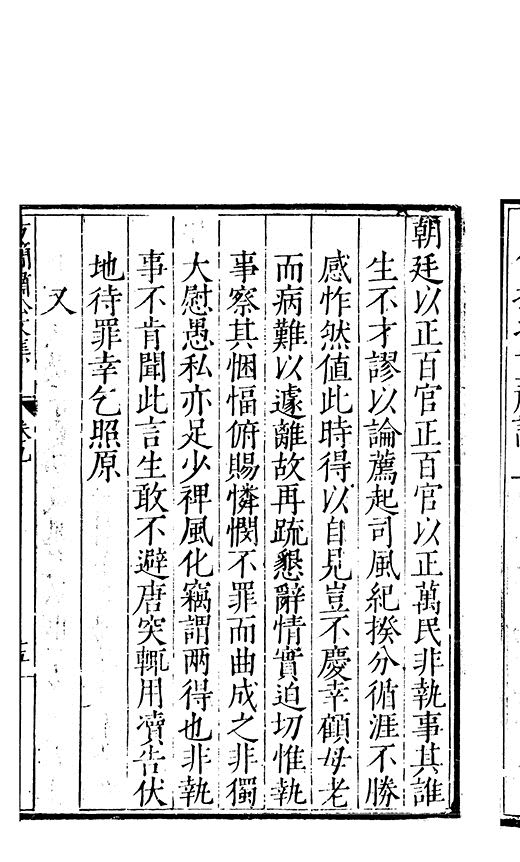 朝廷以正百官正百官以正萬民非執事其誰
生不才謬以論薦起司風紀揆分循涯不勝
感怍然值此時得以自見豈不慶幸顧母老
而病難以遽離故再疏懇辭情實迫切惟執
事察其悃愊俯賜憐憫不罪而曲成之非獨
大慰愚私亦足少裨風化竊謂两得也非執
事不肯聞此言生敢不避唐突輒用瀆告伏
地待罪幸乞照原
又
卷九